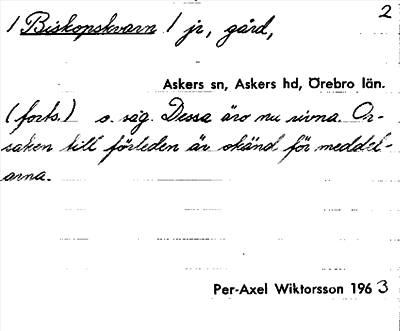 2
/ Biskopskvarn / jr, gård,
Askers sn, Askers hd, Örebro län.
(forts.) o. såg. Dessa äro nu rivna. Or-
saken till förleden är okänd för meddel-
arna.
Per-Axel Wiktorsson 1963